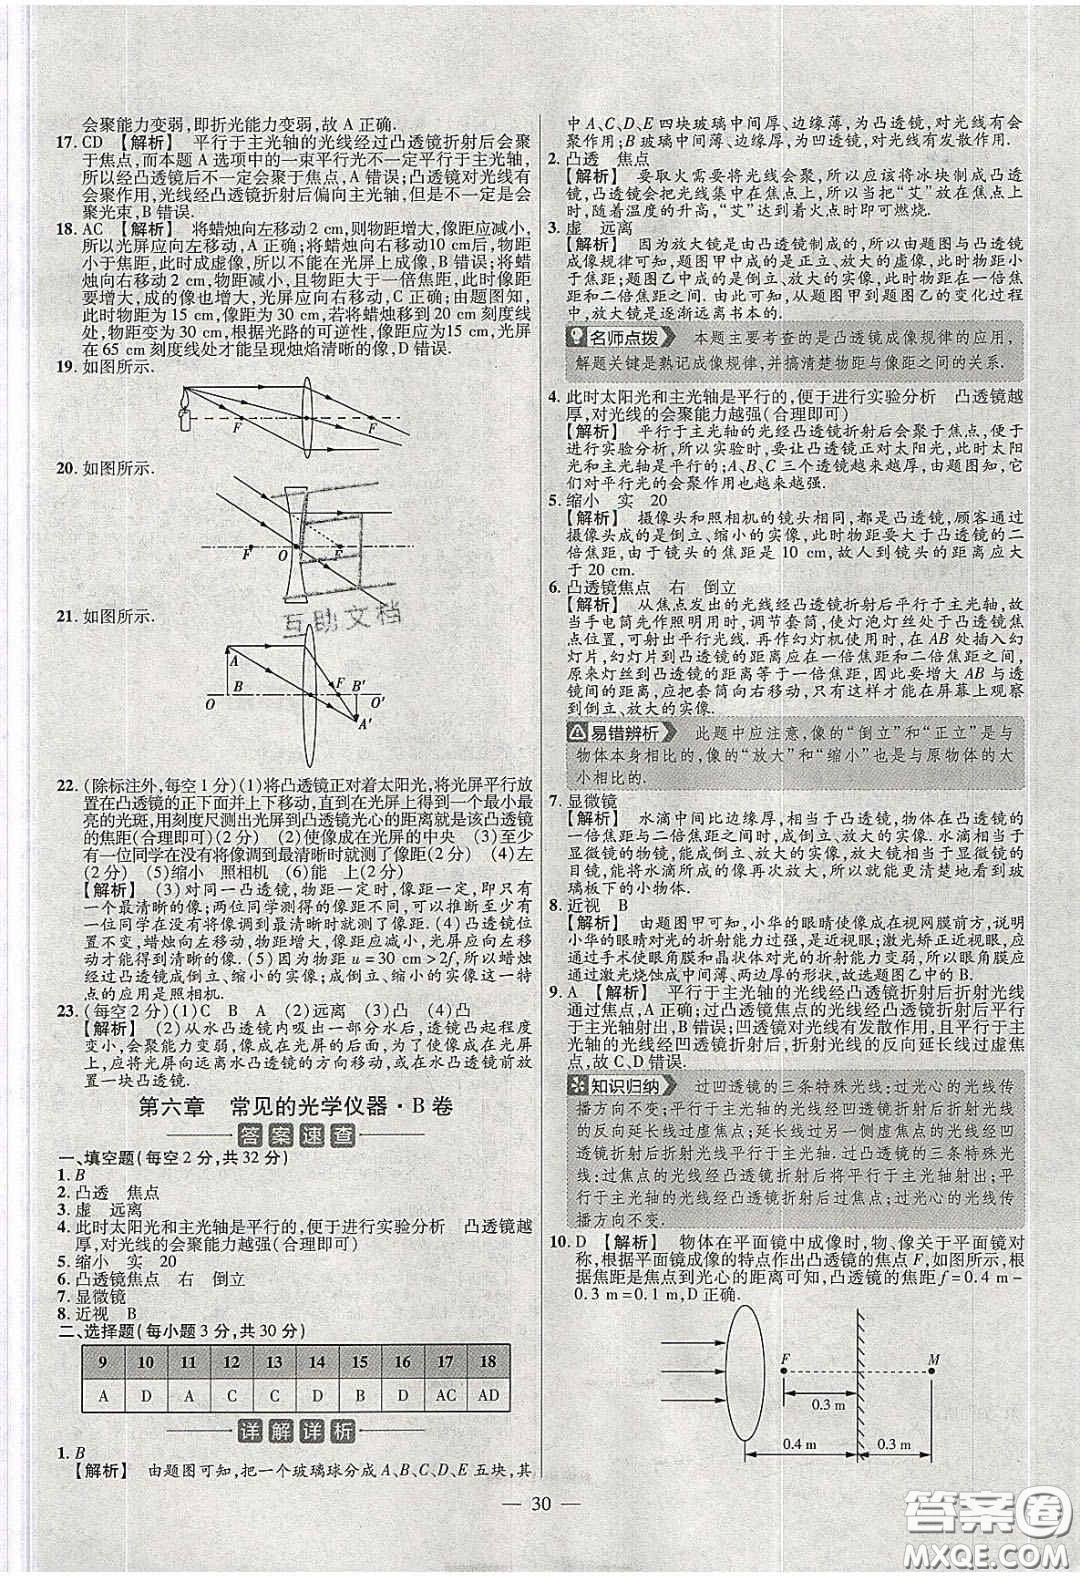 会聚能力变弱,即折光能力变弱,故 A 正确.
17. CD 【解析】 平行于主光轴的光线经过凸透镜折射后会聚
于焦点,而本题 A 选项中的一束平行光不一定平行于主光轴,
所以经凸透镜后不一定会聚于焦点,A 错误;凸透镜对光线有
会聚作用,光线经凸透镜折射后偏向主光轴,但不一定是会
聚光束,B 错误.
18. AC 【解析】 将蜡烛向左移动 2 cm,则物距增大,像距应减小,
所以光屏应向左移动,A 正确;将蜡烛向右移动10 cm,物距
小于焦距,此时成虚像,所以不能在光屏上成像,B 错误;将蜡
烛向右移动 2 cm,物距减小,但物距大于一倍焦距,此时像距
要增大,成的像也增大,光屏应向右移动,C 正确;由题图知,
此时物距为 15 cm,像距为 30 cm,若将蜡烛移到 20 cm 刻度
线处,物距变为 30 cm,根据光路的可逆性,像距为 15 cm,光屏
在 65 cm 刻度线处才能呈现烛焰清晰的像,D 错误.
19. 如图所示.
F
F
20. 如图所示.
F O F
互助文档
21. 如图所示.
A B′
O B F O′
A′
22. (除标注外,每空 1 分)(1)将凸透镜正对着太阳光,将光屏平行放
置在凸透镜的正下面并上下移动,直到在光屏上得到一个最小最
亮的光斑,用刻度尺测出光屏到凸透镜光心的距离就是该凸透镜
的焦距(合理即可)(2 分) (2)使像成在光屏的中央 (3)至少
有一位同学在没有将像调到最清晰时就测量了像距(2 分) (4)左
(2 分) (5)缩小 照相机 (6)能 上(2 分)
【解析】 (3)对同一凸透镜,物距一定时,像距一定,且只有
一个最清晰的像;两位同学测得的像距不同,说明至少有一
位同学在没有将像调到最清晰时就测量了像距.(4)凸透镜
位置不变,蜡烛向左移动,物距变大,像距减小,光屏应向左
移动才能得到清晰的像.(5)因为物距 u = 30 cm > 2f,所以蜡烛
经过凸透镜成倒立、缩小的实像;成倒立、缩小的实像这一特
点的应用是照相机.
23. (每空 2 分)(1)C B A (2)远离 (3)凸 (4)凸
【解析】 (2)从水凸透镜内吸出一部分水后,透镜凸起程度
变小,会聚能力变弱,像成在光屏的后面,为了使像成在光屏
上,光屏应向远离水凸透镜方向移动或在水凸透镜前放
置一块凸透镜.
第六章 常见的光学仪器·B 卷
答案速查
一、填空题(每空 2 分,共 32 分)
1. B
2. 凸透 焦点
3. 虚 远离
4. 此时太阳光和主光轴是平行的,便于进行实验分析 凸透镜越
厚,对光线的会聚能力越强(合理即可)
5. 缩小 实 20
6. 凸透镜焦点 右 倒立
7. 显微镜
8. 近视 B
二、选择题(每小题 3 分,共 30 分)
9 10 11 12 13 14 15 16 17 18
A D A C C D B D AC AD
详解详析
1. B
【解析】 由题图可知,把一个玻璃球分成 A、B、C、D、E 五块,其
中 A、C、D、E 四块玻璃中间厚、边缘薄,为凸透镜,对光线有会
聚作用;B 玻璃中间薄、边缘厚,为凹透镜,对光线有发散作用.
2. 凸透 焦点
【解析】 要取火需要将光线会聚,所以要将冰块制成凸透
镜,凸透镜会把光线集中在焦点上,所以应当把“艾”放在焦点上
时,随着温度的升高,“艾”达到着火点时即可燃烧.
3. 虚 远离
【解析】 因为放大镜是由凸透镜制成的,所以由题图与凸透镜
成像规律可知,题图甲中成的是正立、放大的虚像,此时物距小
于焦距;题图乙中成的是倒立、放大的实像,此时物距在一倍焦
距和二倍焦距之间.由此可知,从题图甲到题图乙的变化过程
中,放大镜是逐渐远离书本的.
名师点拨 本题主要考查的是凸透镜成像规律的应用,
解题关键是熟记成像规律,并搞清楚物距与像距之间的关系.
4. 此时太阳光和主光轴是平行的,便于进行实验分析 凸透镜越
厚,对光线的会聚能力越强(合理即可)
【解析】 平行于主光轴的光经凸透镜折射后会聚于焦点,便于
进行实验分析,所以实验时,要让凸透镜正对太阳光,此时太阳
光和主光轴是平行的;A、B、C 三个透镜越来越厚,由题图知,它
们对光的会聚作用也越来越强.
5. 缩小 实 20
【解析】 摄像头和照相机的镜头相同,都是凸透镜,顾客通过
摄像头成的是倒立、缩小的实像,此时物距要大于凸透镜的二
倍焦距,由于镜头的焦距是 10 cm,故人到镜头的距离应大
于 20 cm.
6. 凸透镜焦点 右 倒立
【解析】 从焦点发出的光线经凸透镜折射后平行于主光轴,故
当手电筒先作照明用时,调节套筒,使灯泡灯丝处于凸透镜
焦点位置,可射出平行光线.再作幻灯机使用时,在 AB 处插入幻
灯片,幻灯片到凸透镜的距离应在一倍焦距和二倍焦距之间,
原来灯丝到凸透镜的距离等于一倍焦距,因此要增大 AB 与透
镜间的距离,应把套筒向右移动,只有这样才能在屏幕上观察
到倒立、放大的实像.
易错辨析 此题中应注意,像的“倒立”和“正立”是与
物体本身相比的,像的“放大”和“缩小”也是与原物体的大
小相比的.
7. 显微镜
【解析】 水滴中间比边缘厚,相当于凸透镜,物体在凸透镜的
一倍焦距与二倍焦距之间时,成倒立、放大的实像.水滴相当于
显微镜的物镜,能成倒立、放大的实像,放大镜相当于目镜,
能将水滴所成的像再次放大,所以能更清楚地看到玻
璃板下的小物体.
8. 近视 B
【解析】 由题图甲可知,小华的眼睛使像成在视网膜前方,说明
小华的眼睛对光的折射能力过强,是近视眼;激光矫正近视眼,
通过手术使眼角膜和晶状体对光的折射能力变弱,所以眼角膜应
通过激光烧蚀成中间薄、两边厚的形状,故选题图乙中的 B.
9. A 【解析】 平行于主光轴的光线经凸透镜折射后折射光线
通过焦点,A 正确;过凸透镜焦点的光线经凸透镜折射后平行
于主光轴射出,B 错误;凹透镜对光线有发散作用,且平行于主
光轴的光线经凹透镜折射后,折射光线的反向延长线过虚焦
点,故 C、D 错误.
知识归纳 过凹透镜的三条特殊光线:过光心的光线传
播方向不变;平行于主光轴的光线经凹透镜折射后折射光线
的反向延长线过虚焦点;延长线过另一侧虚焦点的光线经凹
透镜折射后平行于主光轴.过凸透镜的三条特殊光线:平行
于主光轴的光线经凸透镜折射后过焦点;过焦点的光线经凸透镜折射后将平行于主光轴射出;过光心的光线传
播方向不变.
10. D 【解析】 物体在平面镜中成像时,物、像关于平面镜对
称,根据平面镜成像的特点作出凸透镜的焦点 F,如图所示,根
据焦距是焦点到光心的距离可知,凸透镜的焦距 f = 0.4 m -
0.3 m = 0.1 m,D 正确.
F M
0.3 m
0.4 m 0.3 m
— 30 —
答案圈
MXQE.COM